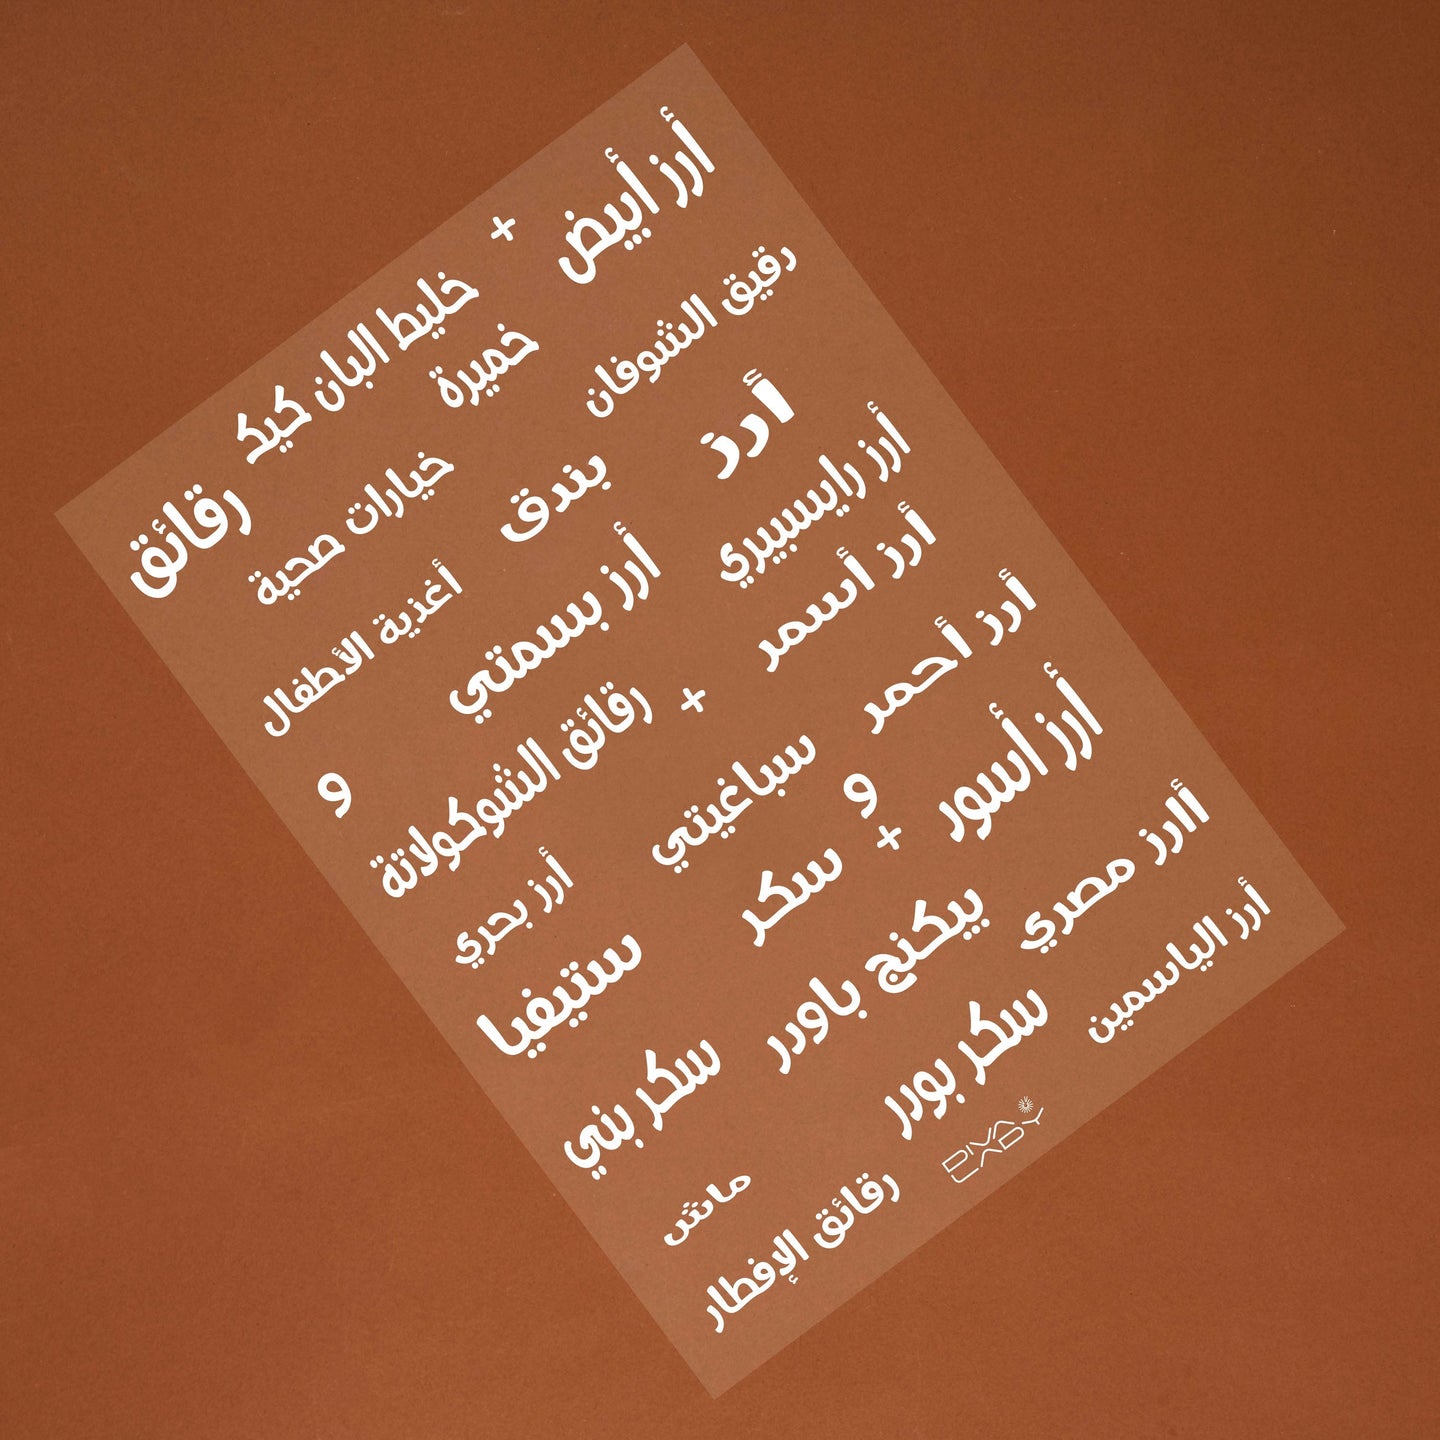 أرز أبيض
+
خليط البان كيك
رقائق
رقيق الشوفان
خميرة
خيارات صحية
أرز
بندق
أغذية الأطفال
أرز رايسبيري
أرز بسمتي
و
أرز أسمر
+
رقائق الشوكولاتة
أرز أحمر
سباغيتي
أرز بحري
أرز أسور
و
+
سكر
ستيفيا
أارز مصري
بيكنج باودر
سكر بني
أرز الياسمين
سكر بودر
ماش
DIVA
LADY
رقائق الإفطار